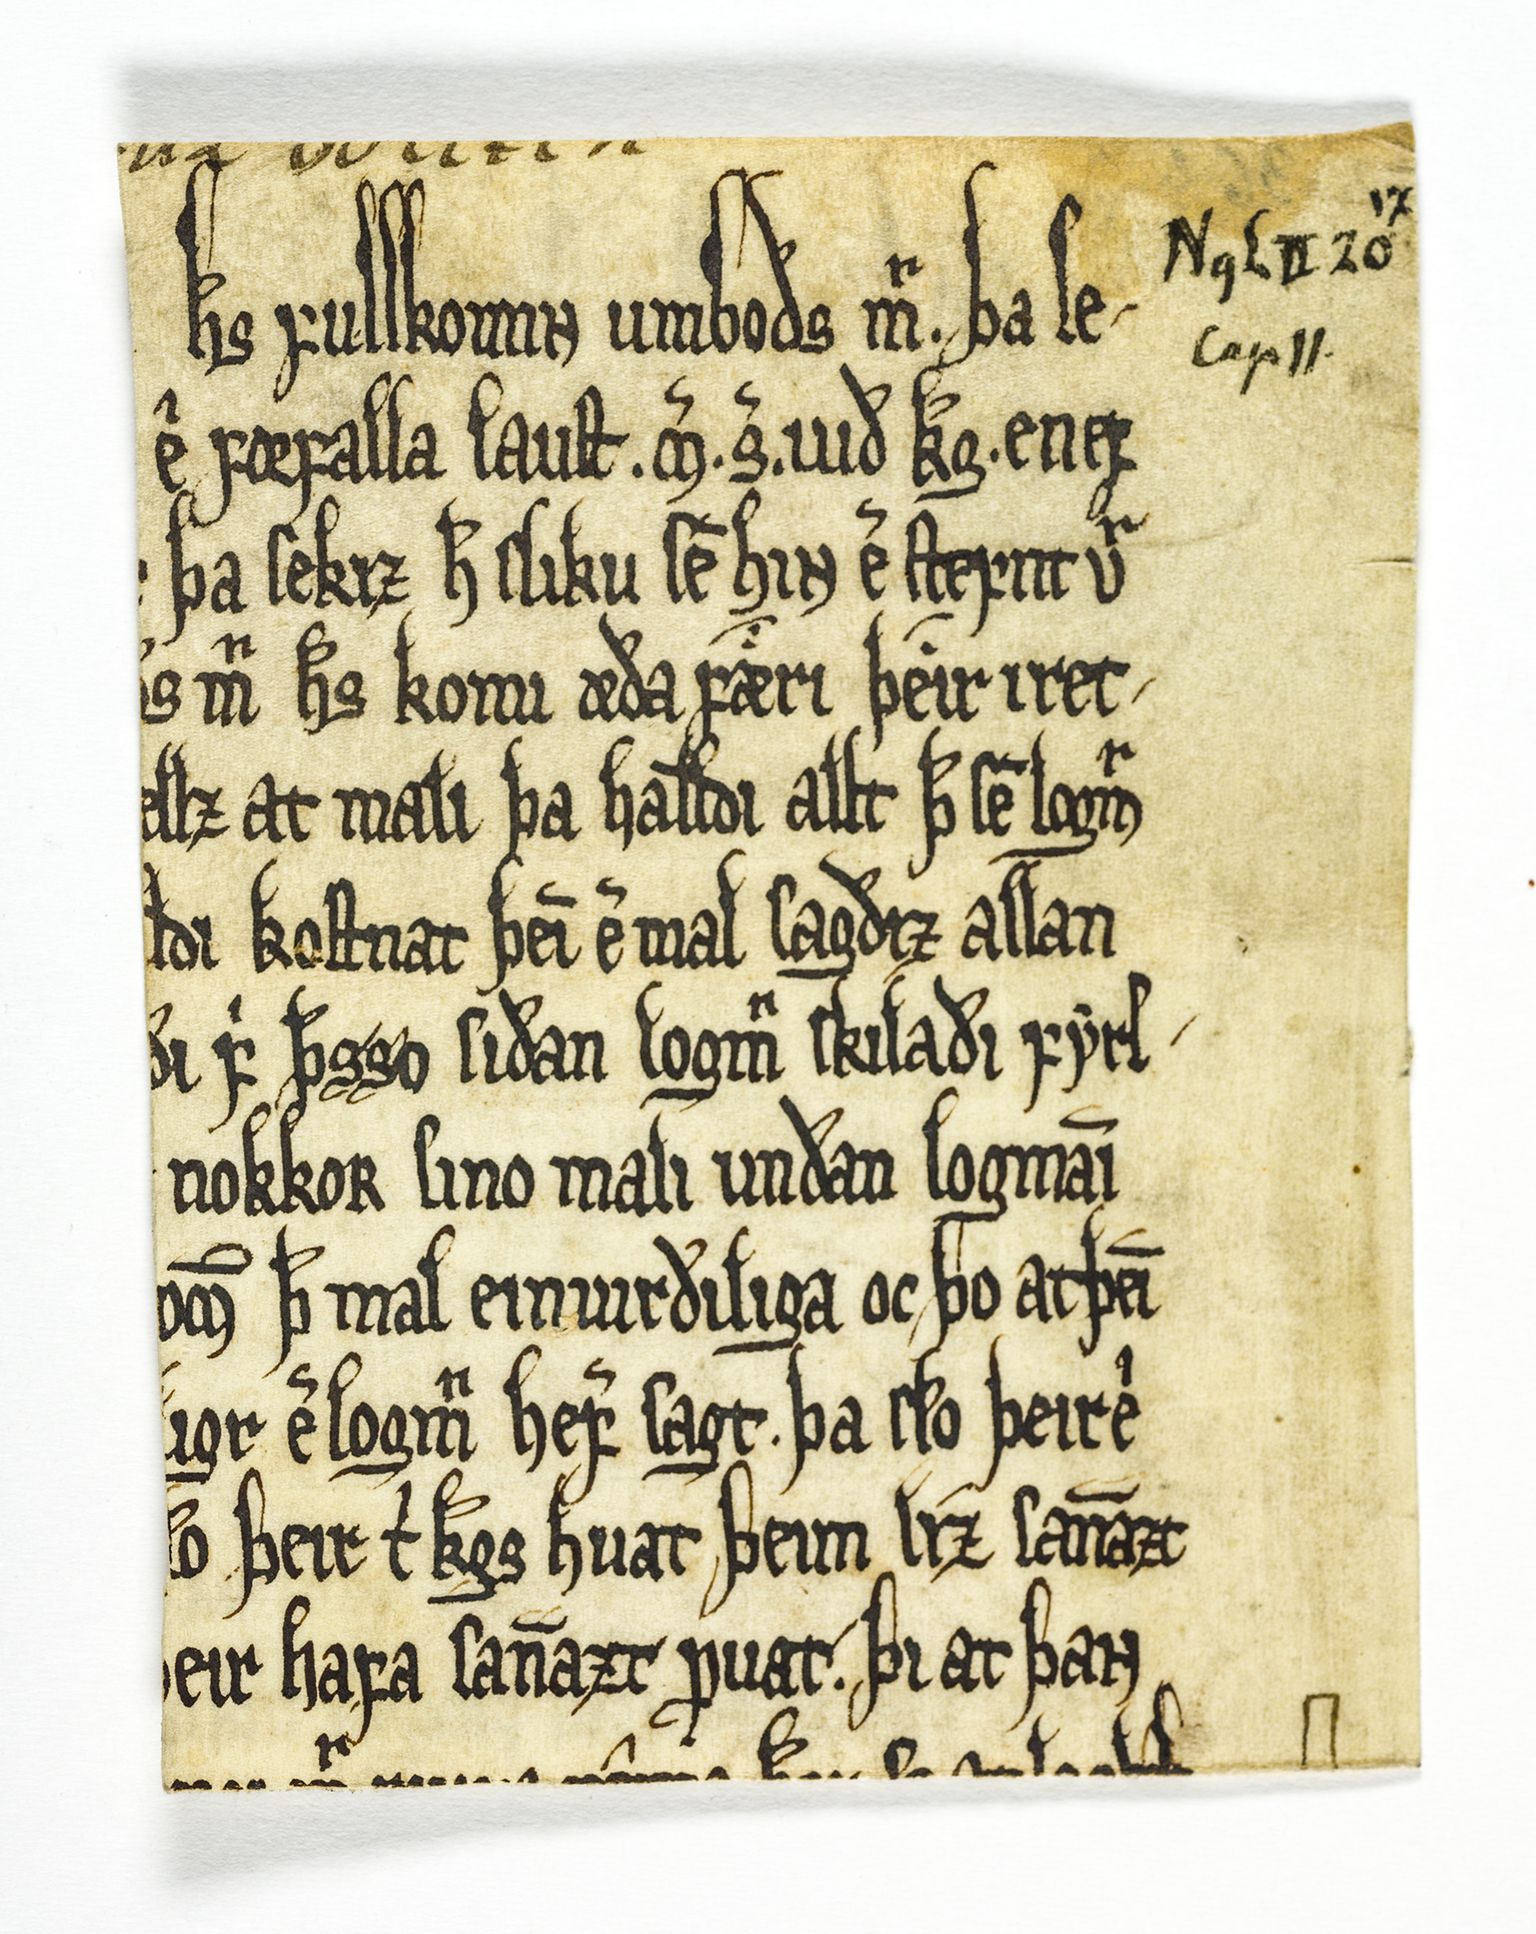 NgL II 20 17
Cap 11.
hs fullkominn umbods mr. þa le-
e᷎ forfalla laust. m̃. s̃. uid kg. en ef
þa sekiz h̄ sliku sē hin ẽ stefnt v
s mr hs komi æda færi þeir i ret-
ellz at mali þa halldi allt þ̄ sē logmr
ldi kostnat þeī ẽ mal sagdiz allan
di f̍ þ̄sso sidan logmr skiladi fyrſ-
nokkor sino mali undan logmāi
om̄ þ̄ mal einuirdiliga oc þo at þeī
igr ẽ logmr hef̃ sagt. þa sko þeir e̍
ko þeir t̍ kgs huat þeim lız̄ san̄azt
eir hafa san̄azt ꝓuat. þi at þann